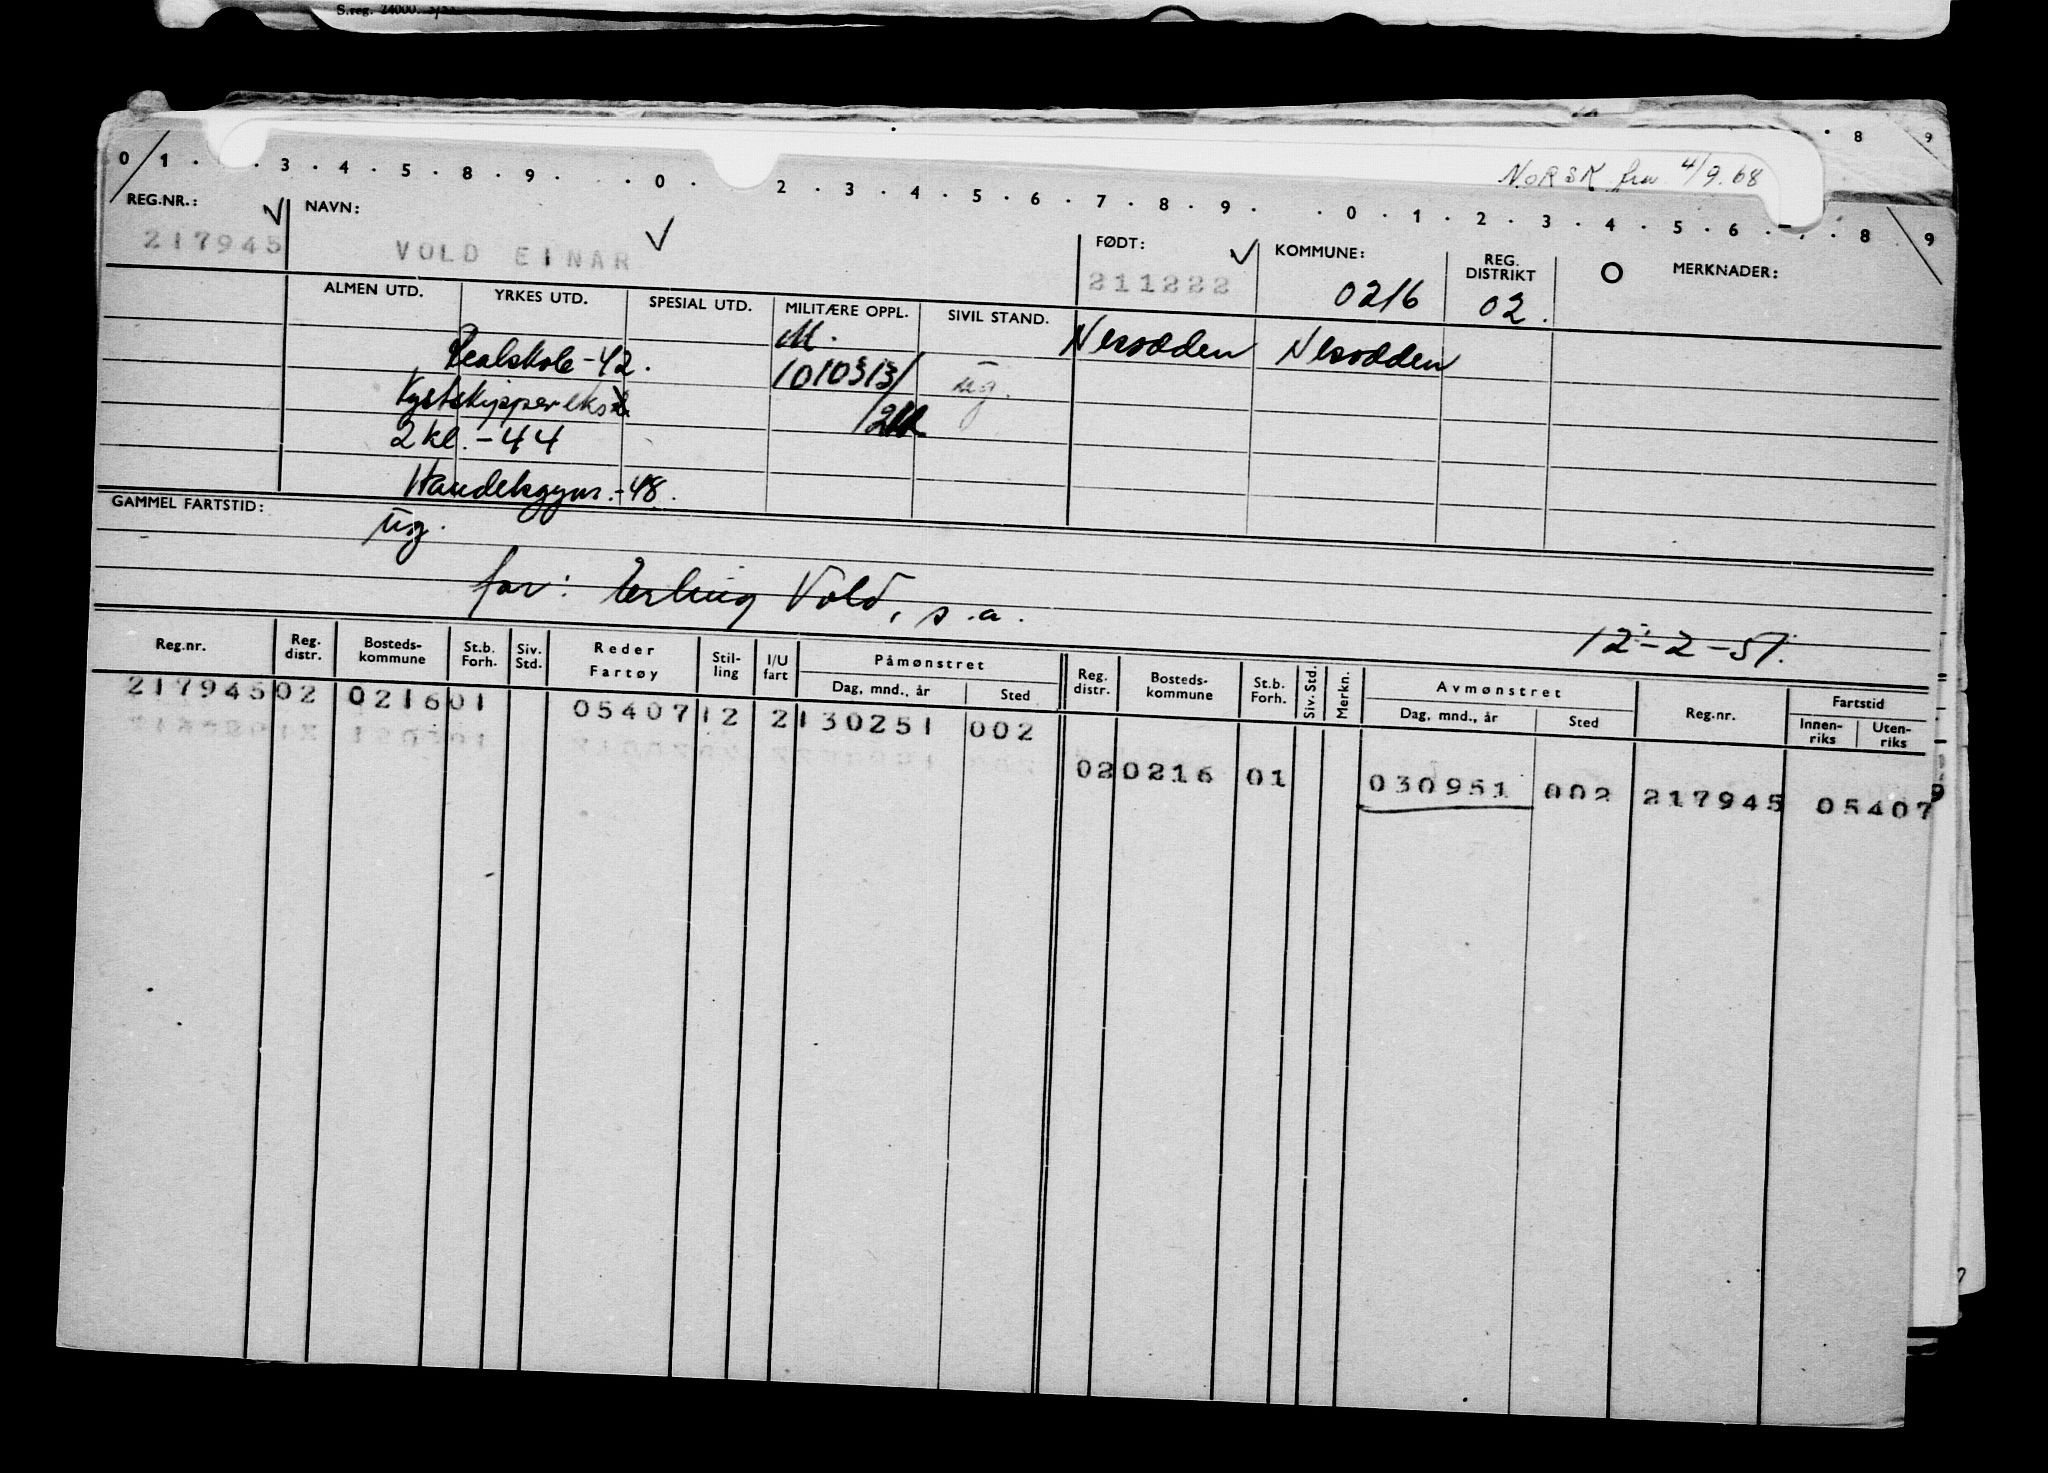 S.reg. 24000.
8 9
NORSK fra 4/9.68
0 1 . . 3 . 4 . 5 . 8 . 9 . . . 0 . 2 . 3 . 4 . 5 . 6 . 7 . 8 . 9 . . 0 . 1 . 2 . 3 . 4 . 5 . 6 . . 8 . 9
REG.NR.: NAVN: FØDT: KOMMUNE: REG. DISTRIKT MERKNADER:
217945 VOLD EINAR 211222 0216 02.
ALMEN UTD. YRKES UTD. SPESIAL UTD. MILITÆRE OPPL. SIVIL STAND.
M. Nesodden Nesodden
Realskole -42. 1010313/ ug.
Kystskipper eks
2 kl. -44
Handelsgym. -48.
GAMMEL FARTSTID:
ug.
far: Erling Vold, s.a.
12-2-51.
Reg.nr. Reg. distr. Bosteds-kommune St.b. Forh. Siv. Std. Reder Fartøy Stil-ling I/U fart Påmønstret Dag, mnd., år Sted Reg. distr. Bosteds-kommune St.b. Forh. Siv. Std. Merkn. Avmønstret Dag, mnd., år Sted Reg.nr. Fartstid Innen-riks Uten-riks
217945 02 0216 01 05407 12 2 130251 002
02 0216 01 030951 002 217945 05407